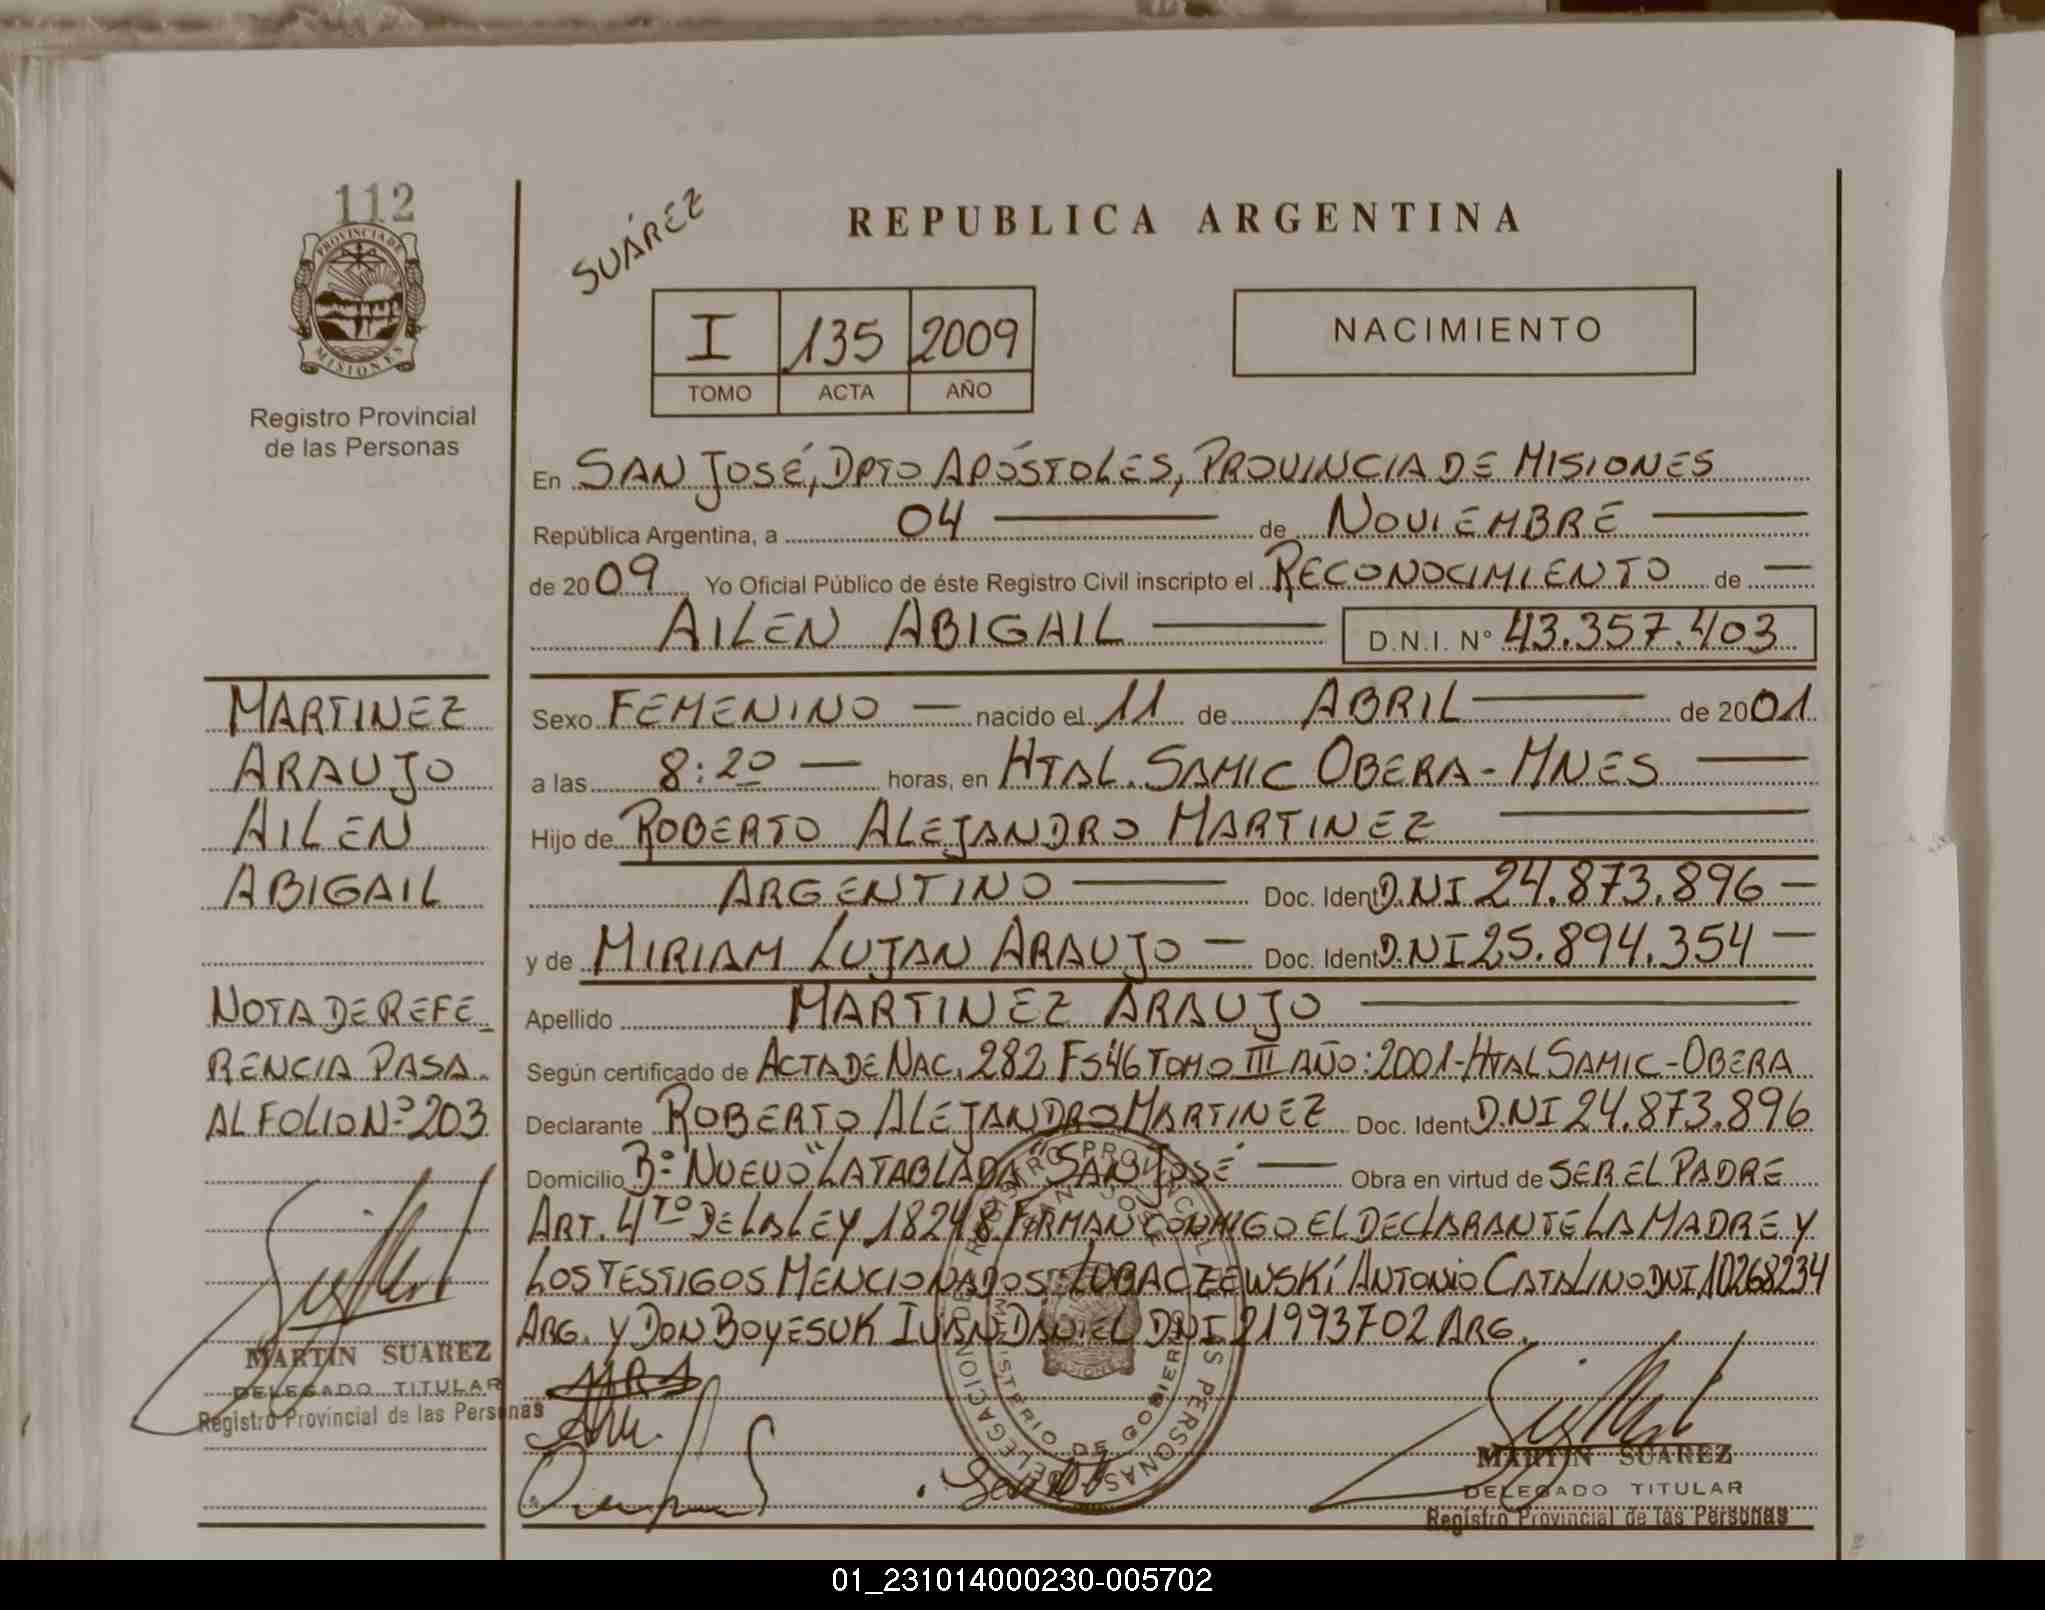 112
PROVINCIA DE
MISIONES
Registro Provincial
de las Personas
MARTINEZ
ARAUJO
AILEN
ABIGAIL
NOTA DE REFE_
RENCIA PASA.
AL FOLIO Nº 203
MARTIN SUAREZ
DELEGADO TITULAR
Registro Provincial de las Personas
SUÁREZ
REPUBLICA ARGENTINA
I 135 2009
TOMO ACTA AÑO
NACIMIENTO
En SAN JOSÉ, DPTO APÓSTOLES, PROVINCIA DE MISIONES
República Argentina, a 04 de NOVIEMBRE
de 2009 Yo Oficial Público de éste Registro Civil inscripto el RECONOCIMIENTO de —
AILEN ABIGAIL D.N.I. Nº 43.357.403
Sexo FEMENINO — nacido el 11 de ABRIL de 2001
a las 8:20 — horas, en HTAL. SAMIC OBERA - MNES
Hijo de ROBERTO ALEJANDRO MARTINEZ
ARGENTINO Doc. Ident D.NI 24.873.896 —
y de MIRIAM LUJAN ARAUJO — Doc. Ident D.NI 25.894.354 —
Apellido MARTINEZ ARAUJO
Según certificado de ACTA DE NAC. 282 Fs 46 TOMO III AÑO: 2001 - HTAL SAMIC - OBERA
Declarante ROBERTO ALEJANDRO MARTINEZ Doc. Ident D.NI 24.873.896
Domicilio Bº NUEVO "LA TABLADA" SAN JOSÉ — Obra en virtud de SER EL PADRE
ART. 4TO DE LA LEY 18248 FIRMAN CONMIGO EL DECLARANTE LA MADRE Y
LOS TESTIGOS MENCIONADOS: LUBACZEWSKI ANTONIO CATALINO DNI 10268234
ARG. Y DON BOYESUK IVAN DANIEL DNI 21993702 ARG.
REGISTRO PROVINCIAL DE LAS PERSONAS DELEGACION
SAN JOSE
MINISTERIO DE GOBIERNO
MARTIN SUAREZ
DELEGADO TITULAR
Registro Provincial de las Personas
01_231014000230-005702